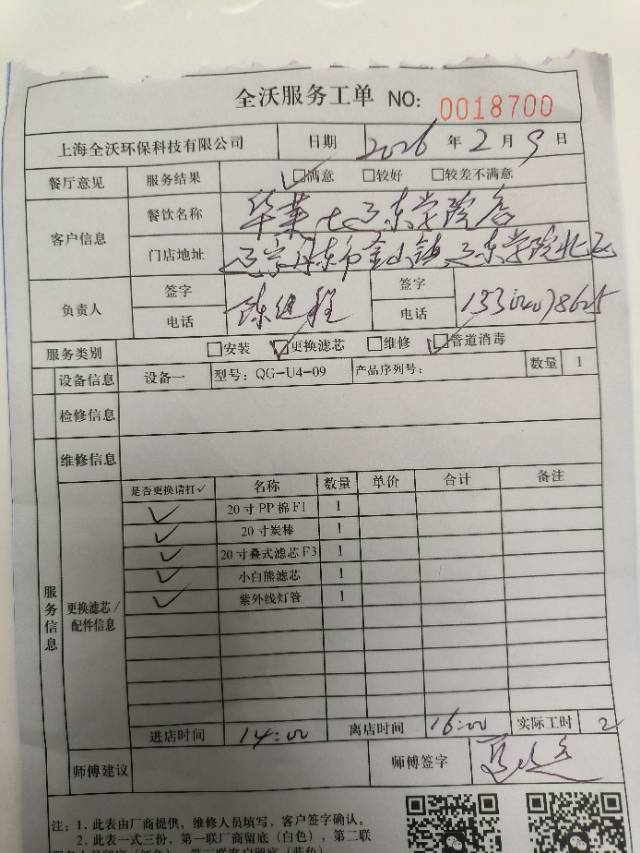 全沃服务工单 NO: 0018700
上海全沃环保科技有限公司 日期 2026 年 2 月 9 日
餐厅意见 服务结果 ☑满意 □较好 □较差不满意
客户信息 餐饮名称 华莱士辽东学院店
门店地址 辽宁丹东市金山镇辽东学院北
负责人 签字 签字
电话 电话
服务类别 □安装 ☑更换滤芯 □维修 ☑管道消毒
设备信息 设备一 型号: QG-U4-09 产品序列号: 数量 1
检修信息
维修信息
服务信息 更换滤芯/配件信息 是否更换请打✓ 名称 数量 单价 合计 备注
✓ 20寸PP棉F1 1
✓ 20寸炭棒 1
✓ 20寸叠式滤芯F3 1
✓ 小白熊滤芯 1
✓ 紫外线灯管 1
进店时间 14:00 离店时间 16:00 实际工时 2
师傅建议 师傅签字
注: 1. 此表由厂商提供, 维修人员填写, 客户签字确认。
2. 此表一式三份, 第一联厂商留底(白色), 第二联